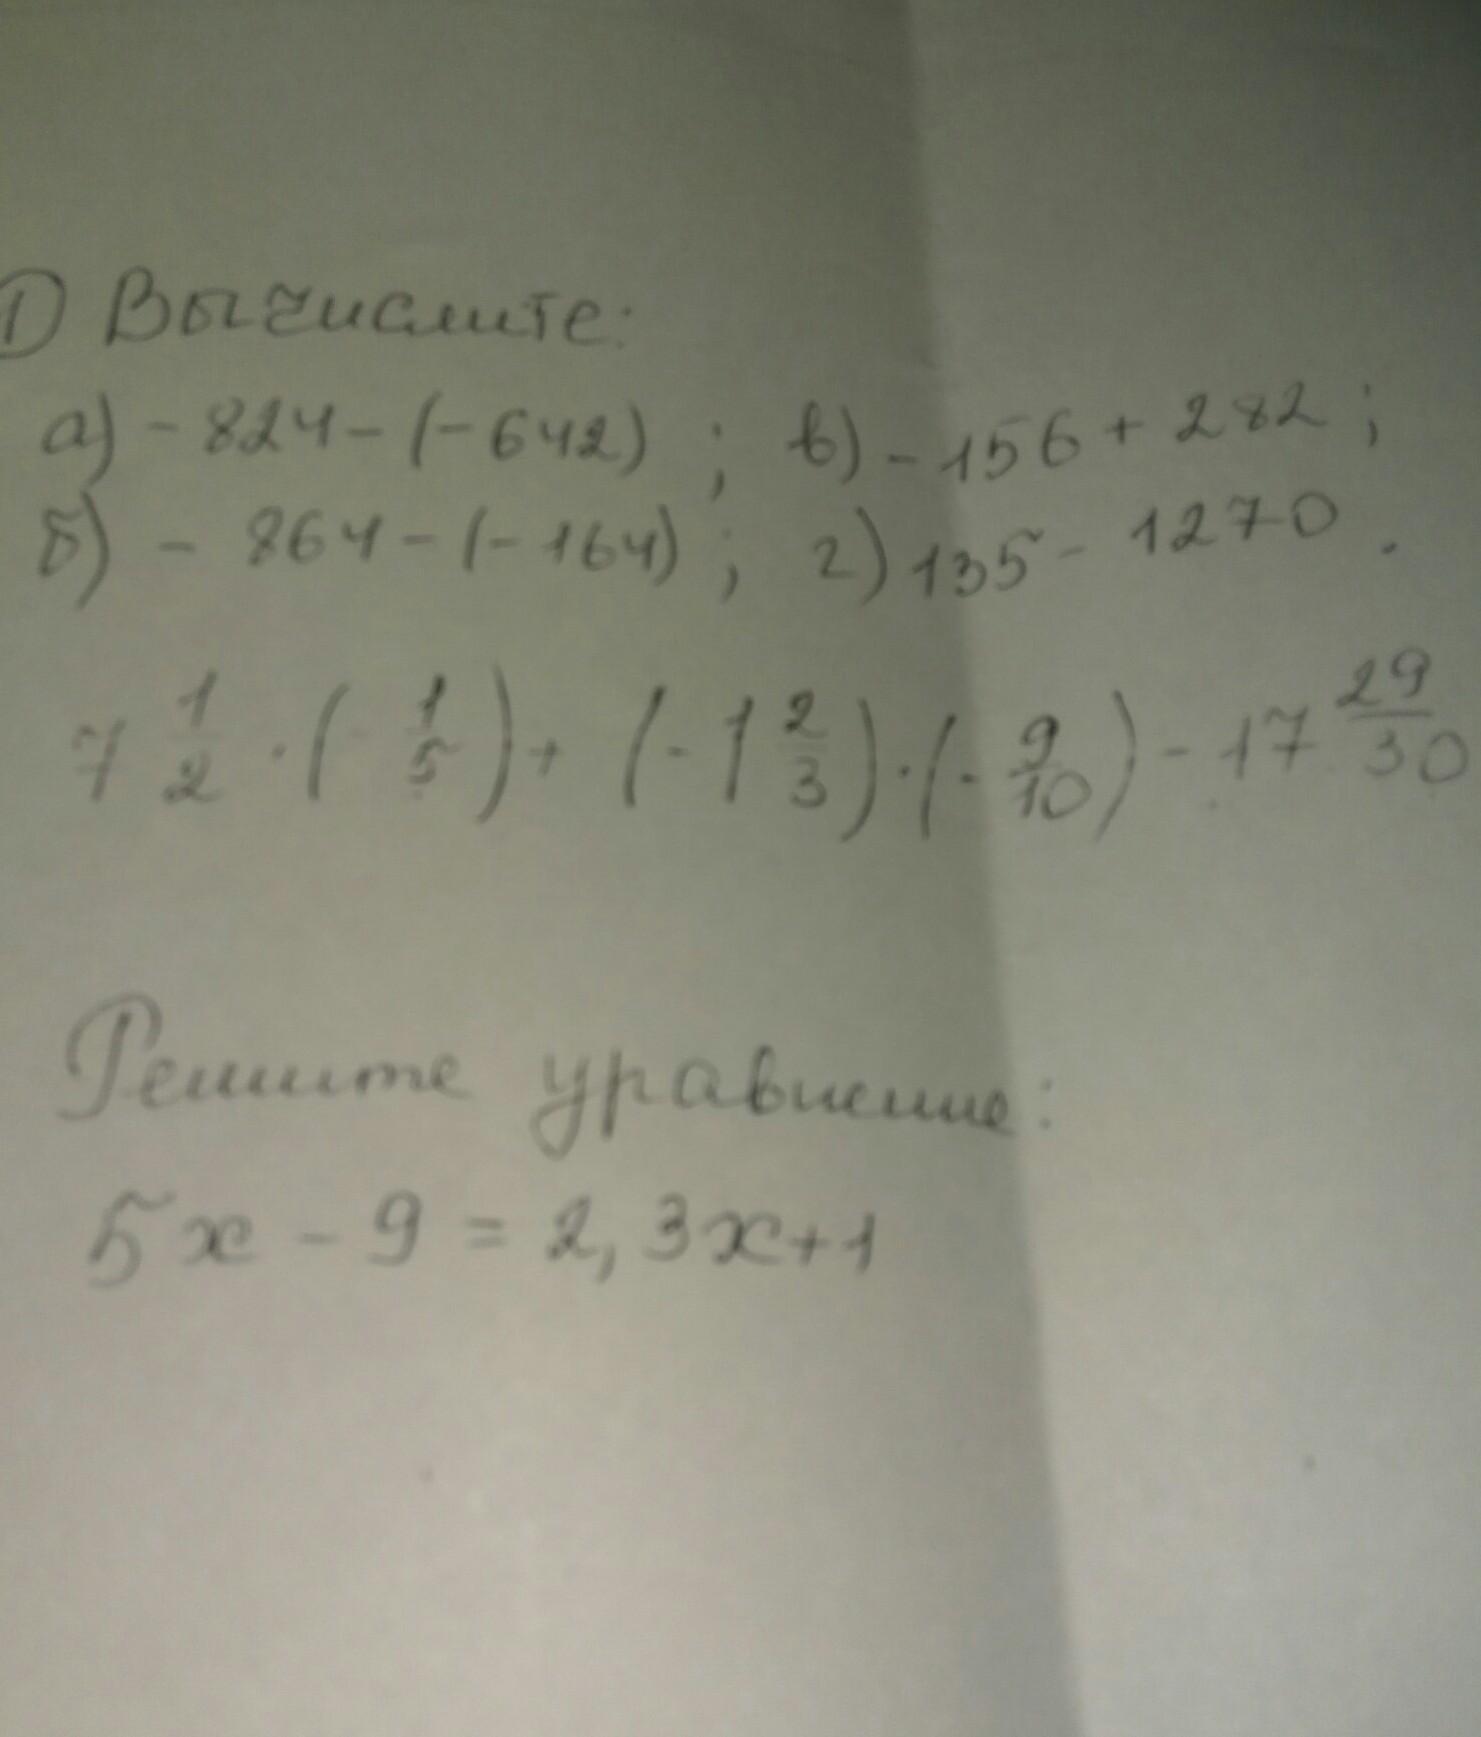 1) Вычислите:
а) - 824 - (- 642) ; в) - 156 + 282 ;
б) - 864 - (- 164) ; г) 135 - 1270 .
7 1/2 · (- 1/5) + (- 1 2/3) · (- 9/10) - 17 29/30
Решите уравнение:
5x - 9 = 2,3x + 1